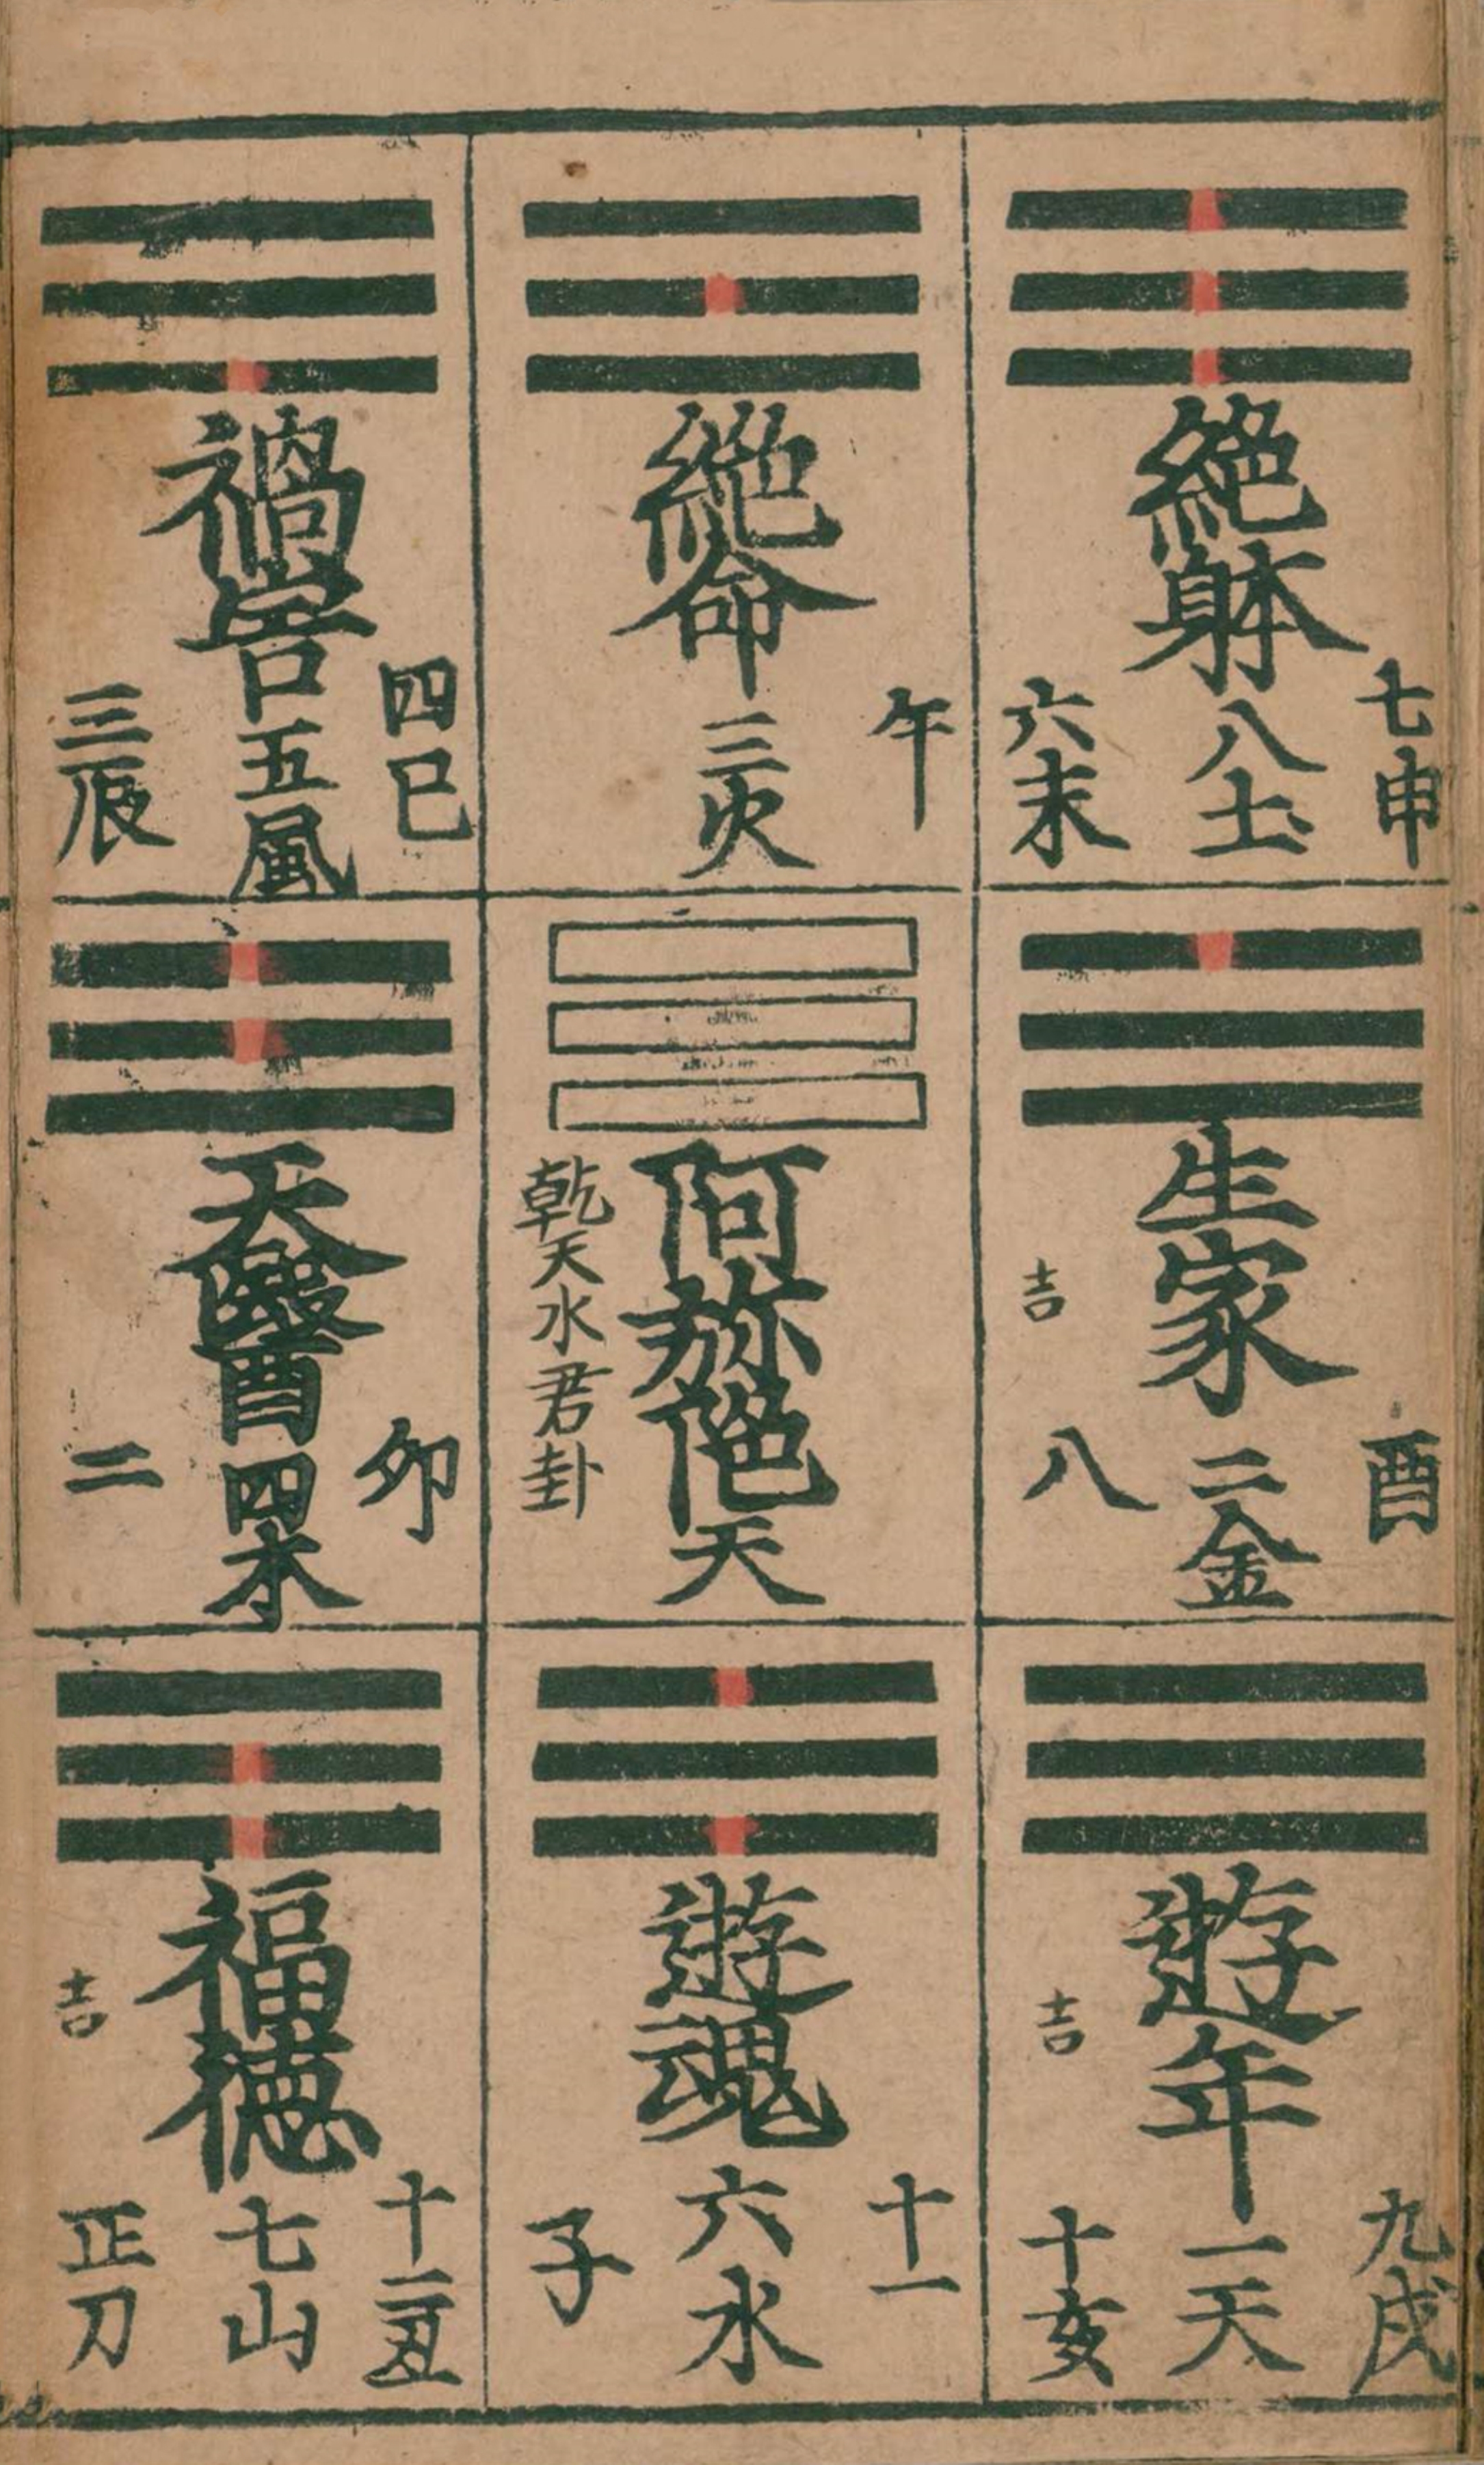 絶躰
七申
八土
六未
絶命
午
三火
禍害
四巳
五風
三辰
生家
吉
酉
二金
八
阿弥陀
天
乾天水君卦
天醫
卯
四木
二
遊年
吉
九戌
一天
十亥
遊魂
十一
六水
子
福徳
吉
十二丑
七山
正